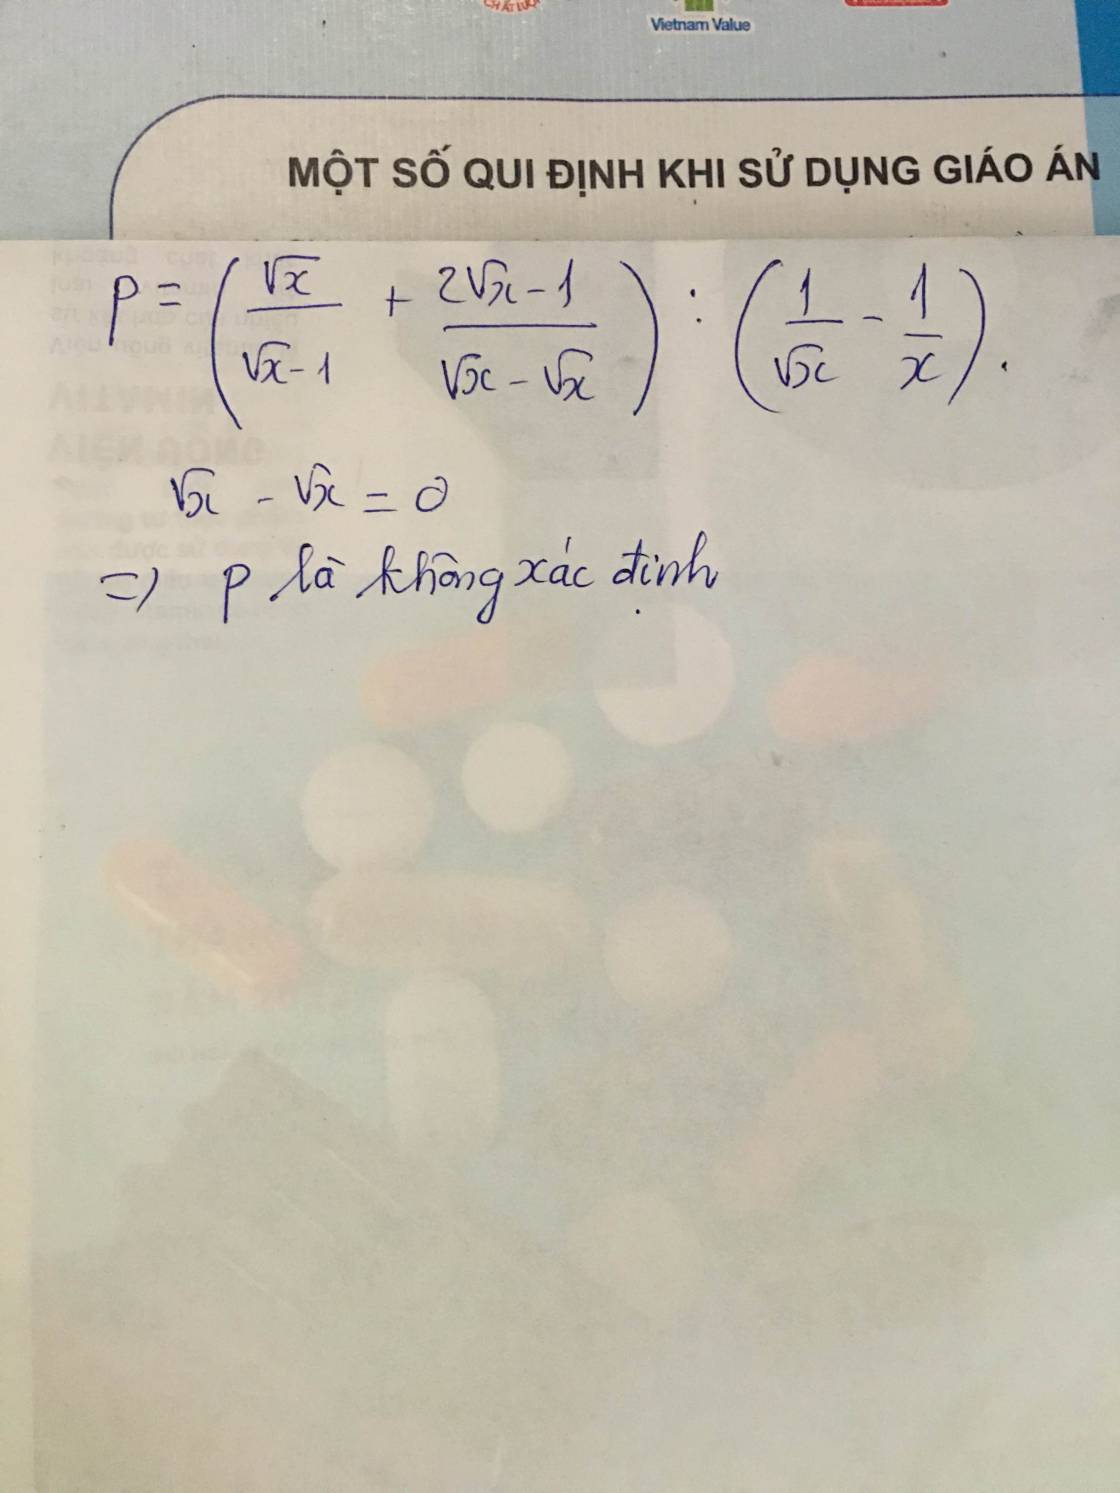 CHẤT LƯỢ
Vietnam Value
MỘT SỐ QUI ĐỊNH KHI SỬ DỤNG GIÁO ÁN
P = ( √x / (√x - 1) + (2√x - 1) / (√x - √x) ) : ( 1/√x - 1/x ).
√x - √x = 0
=> P là không xác định